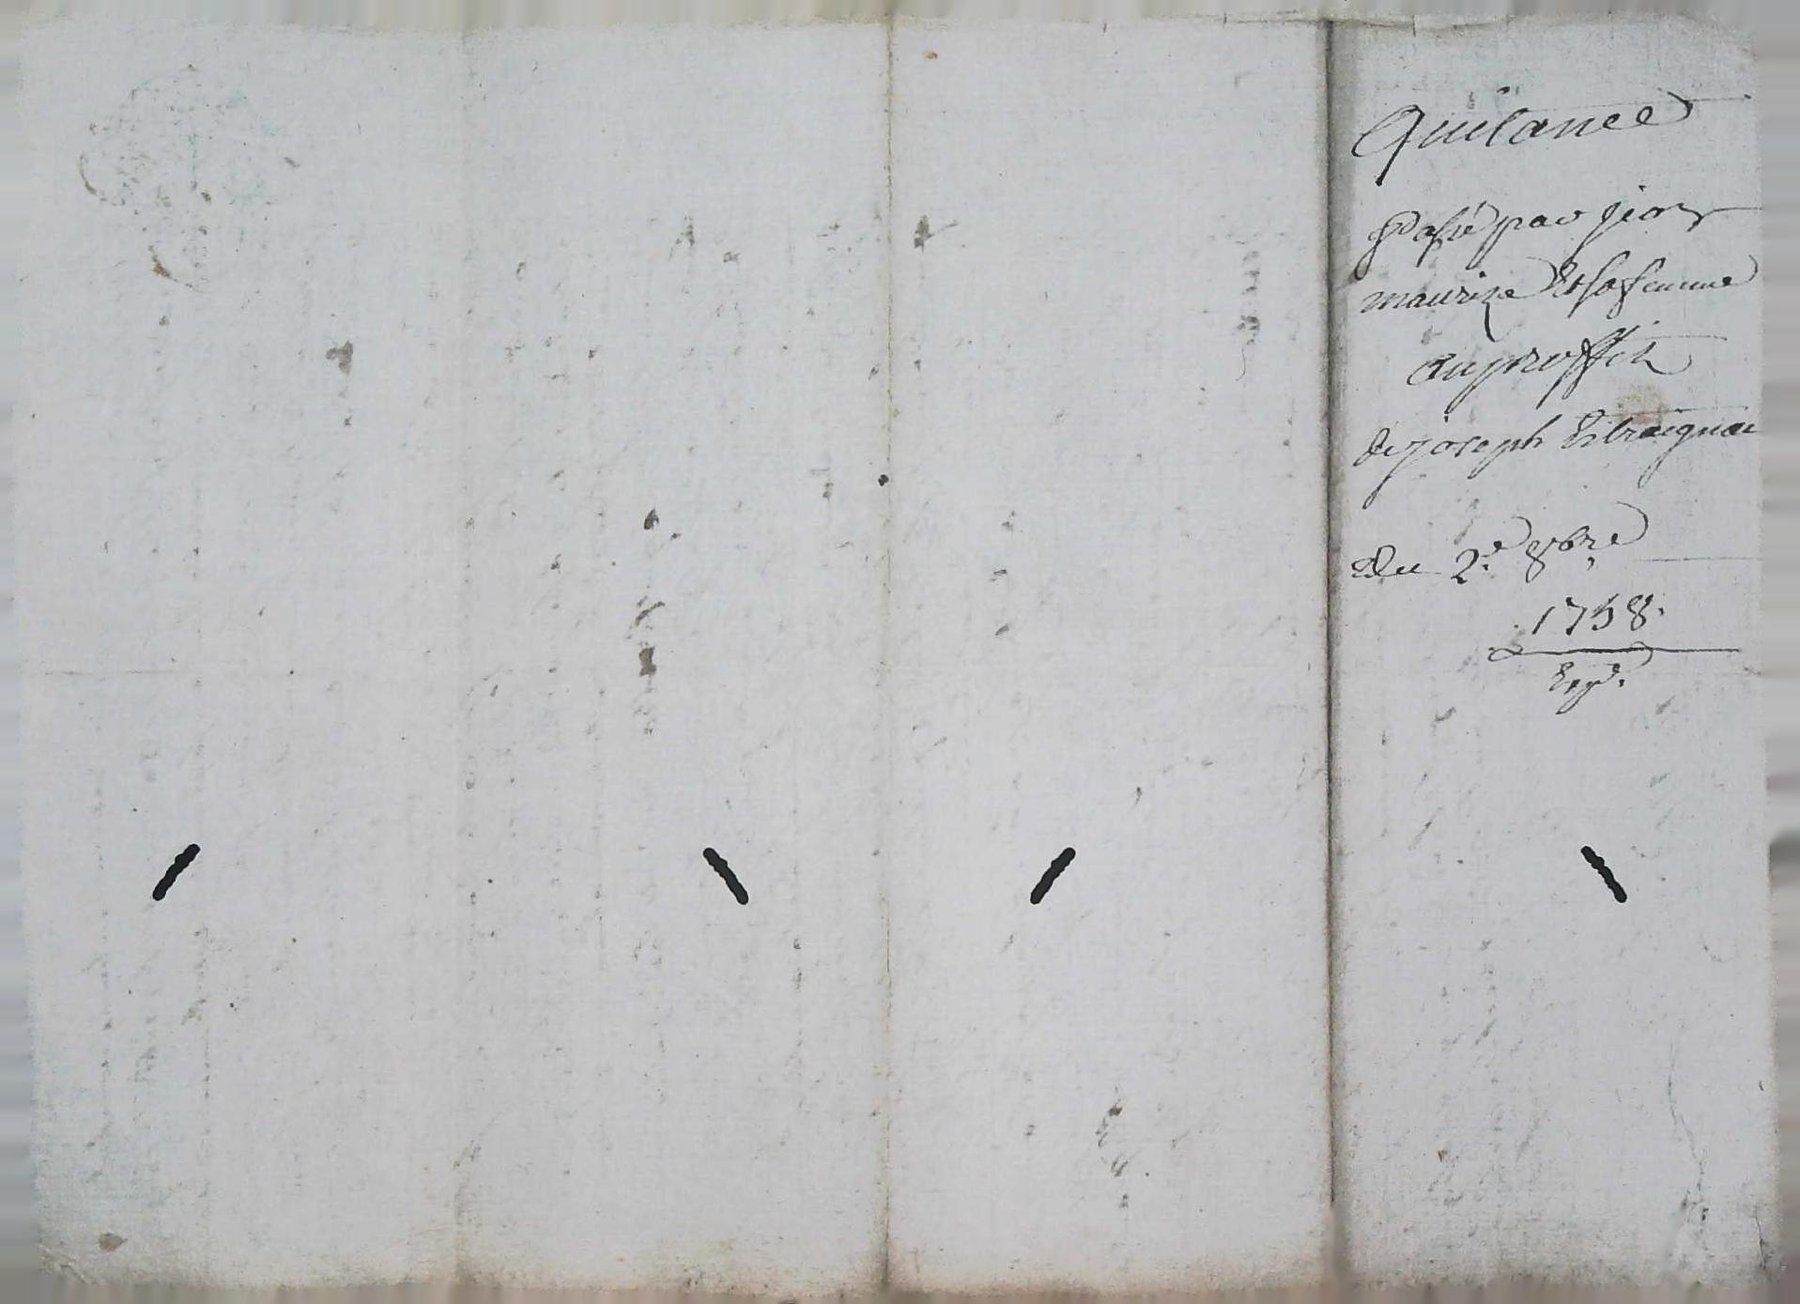 Quitance
passé par
maurize et sa femme
au proffit
de joseph
du 2.e 9bre
1758.
Exp.